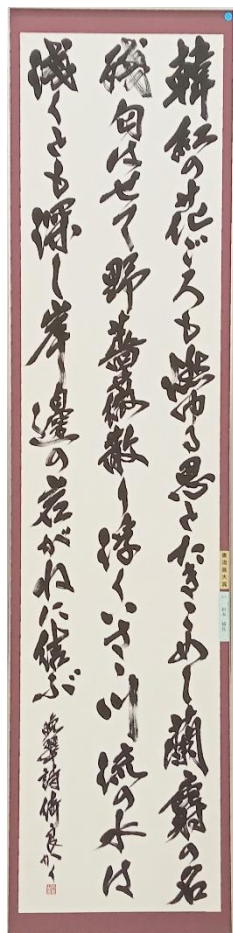 韓紅の花ごろも燃ゆる思とたきこめし蘭麝の名
残匂はせて野薔薇散り浮くいさゝ川流の水は
浅くとも深し岸邊の岩がねに結ぶ
晩翠詩 倚良かく